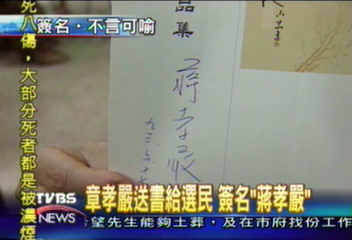 簽名‧不言可喻
死八傷，大部分死者都是被濃煙
品集
蔣孝嚴
九三、六、十七
章孝嚴送書給選民 簽名"蔣孝嚴"
TVBS
NEWS
望先生能夠土葬，及在市府找份工作